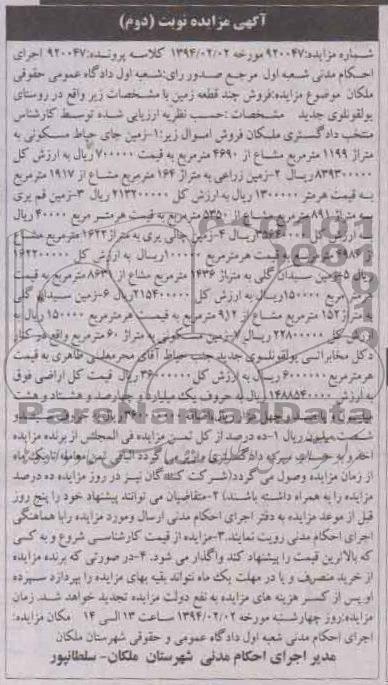 آگهی مزایده نوبت (دوم)
شماره مزایده:۹۲۰۰۴۷ مورخه ۱۳۹۴/۰۲/۰۲ کلاسه پرونده:۹۲۰۰۴۷ اجرای
احکام مدنی شعبه اول مرجع صدور رای:شعبه اول دادگاه عمومی حقوقی
ملکان موضوع مزایده:فروش چند قطعه زمین با مشخصات زیر واقع در روستای
یولقونلوی جدید مشخصات :حسب نظریه ارزیابی شده توسط کارشناس
منتخب دادگستری ملکان فروش اموال زیر:۱-زمین جای حیاط مسکونی به
متراژ ۱۱۹۹ مترمربع مشاع از ۴۶۹۰ مترمربع به قیمت ۷۰۰۰۰۰ ریال به ارزش کل
۸۳۹۳۰۰۰۰۰ریال ۲-زمین زراعی به متراژ ۱۶۴ مترمربع مشاع از ۱۹۱۷ مترمربع
به قیمت هرمتر ۱۳۰۰۰۰۰ ریال به ارزش کل ۲۱۳۲۰۰۰۰۰ ریال ۳-زمین قم یری
به متراژ ۸۹۱ مترمربع مشاع از ۵۳۵۰ مترمربع به قیمت هرمتر مربع ۴۰۰۰۰ ریال
به ارزش کل ریال ۴-زمین چالی یری به متراژ ۱۶۲۲مترمربع مشاع
از ۴۸۸۶ مترمربع به قیمت هرمترمربع ۱۰۰۰۰۰ریال به ارزش کل ۱۶۲۲۰۰۰۰۰
ریال ۵-زمین سیدان گلی به متراژ ۱۴۳۶ مترمربع مشاع از ۸۶۳۱ مترمربع به قیمت
هرمترمربع ۱۵۰۰۰۰ریال به ارزش کل ۲۱۵۴۰۰۰۰۰ریال ۶-زمین سیدان گلی
به متراژ ۱۵۲ مترمربع مشاع از ۹۱۲ مترمربع به قیمت هرمترمربع ۱۵۰۰۰۰ ریال به
ارزش کل ۲۲۸۰۰۰۰۰ ریال ۷-زمین مسکونی به متراژ ۶۰ مترمربع واقع در کنار
دکل مخابراتی یولقونلوی جدید جنب حیاط آقای محرمعلی طاهری به قیمت
هرمترمربع ۶۰۰۰۰۰ ریال به ارزش کل ۳۶۰۰۰۰۰۰ ریال قیمت کل اراضی فوق
به ارزش ۱۴۸۸۵۴۰۰۰۰ریال به حروف یک میلیارد و چهارصد و هشتاد و هشت
شصت میلیون ریال ۱-ده درصد از کل ثمن مزایده فی المجلس از برنده مزایده
اخذ و به حساب سپرده دادگستری واریز می گردد الباقی ثمن معامله تا یک ماه
از زمان مزایده وصول می گردد(شرکت کنندگان نیز در روز مزایده ده درصد
مزایده را به همراه داشته باشند) ۲-متقاضیان می توانند پیشنهاد خود را پنج روز
قبل از موعد مزایده به دفتر اجرای احکام مدنی ارسال ومورد مزایده رابا هماهنگی
اجرای احکام مدنی رویت نمایند.۳-مزایده از قیمت کارشناسی شروع و به کسی
که بالاترین قیمت را پیشنهاد کند واگذار می شود. ۴-در صورتی که برنده مزایده
از خرید منصرف و یا در مهلت یک ماه نتواند بقیه بهای مزایده را بپردازد سپرده
او پس از کسر هزینه های مزایده به نفع دولت مزایده تجدید خواهد شد. زمان
مزایده:روز چهارشنبه مورخه ۱۳۹۴/۰۲/۰۲ ساعت ۱۳ الی ۱۴ مکان مزایده:
اجرای احکام مدنی شعبه اول دادگاه عمومی و حقوقی شهرستان ملکان
مدیر اجرای احکام مدنی شهرستان ملکان- سلطانپور
ParsNamadData